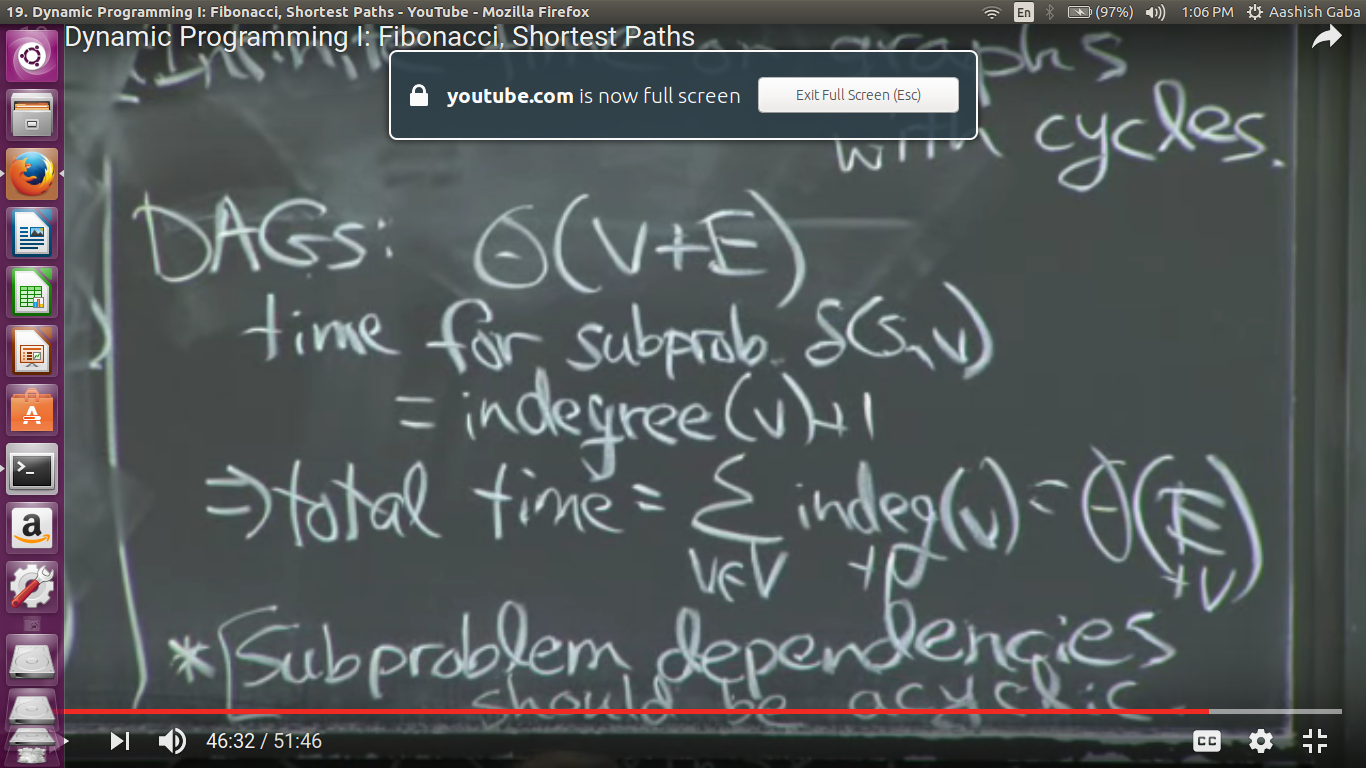 19. Dynamic Programming I: Fibonacci, Shortest Paths - YouTube - Mozilla Firefox
En (97%) 1:06 PM Aashish Gaba
Dynamic Programming I: Fibonacci, Shortest Paths
youtube.com is now full screen Exit Full Screen (Esc)
graphs
with cycles.
DAGs: Θ(V+E)
time for subprob. δ(s,v)
= indegree(v)+1
⇒ total time = ∑ indeg(v) = Θ(E
v∈V +1 +V)
* Subproblem dependencies
should be acyclic
46:32 / 51:46
CC